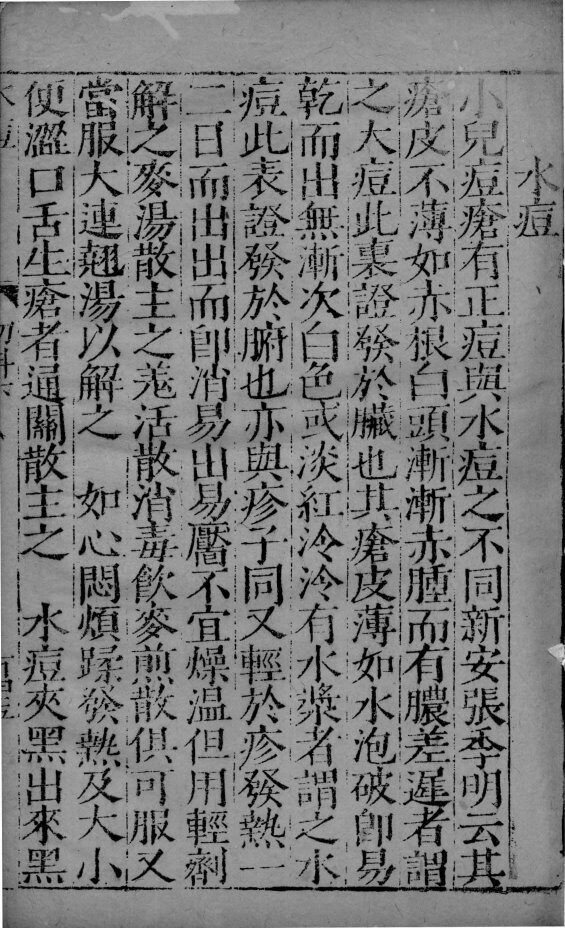 水痘
小兒痘瘡有正痘與水痘之不同新安張季明云其
瘡皮不薄如赤根白頭漸漸赤腫而有膿差遲者謂
之大痘此裏證發於臟也其瘡皮薄如水泡破卽易
乾而出無漸次白色或淡紅冷冷有水漿者謂之水
痘此表證發於腑也亦與疹子同又輕於疹發熱一
二日而出出而卽消易出易靨不宜燥温但用輕劑
解之麥湯散主之羗活散消毒飲麥煎散俱可服又
當服大連翹湯以解之　如心悶煩躁發熱及大小
便澀口舌生瘡者通關散主之　水痘夾黑出來黑